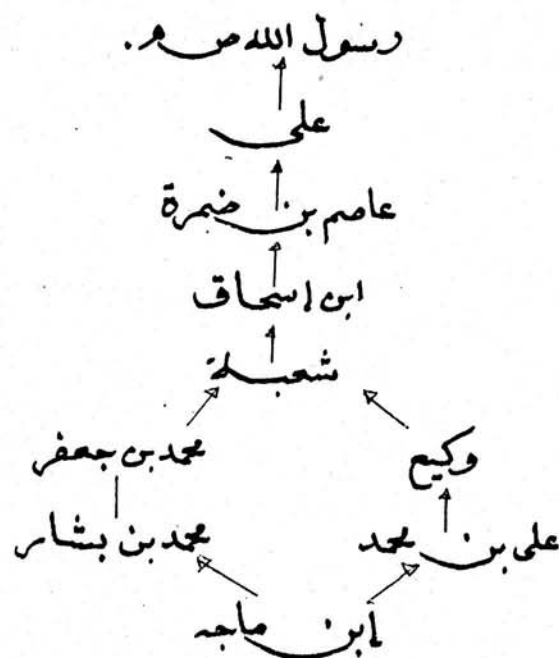 رسول الله ص م.
علي
عاصم بن ضمرة
ابن إسحاق
شعبة
وكيع محمد بن جعفر
علي بن محمد محمد بن بشار
إبن ماجه